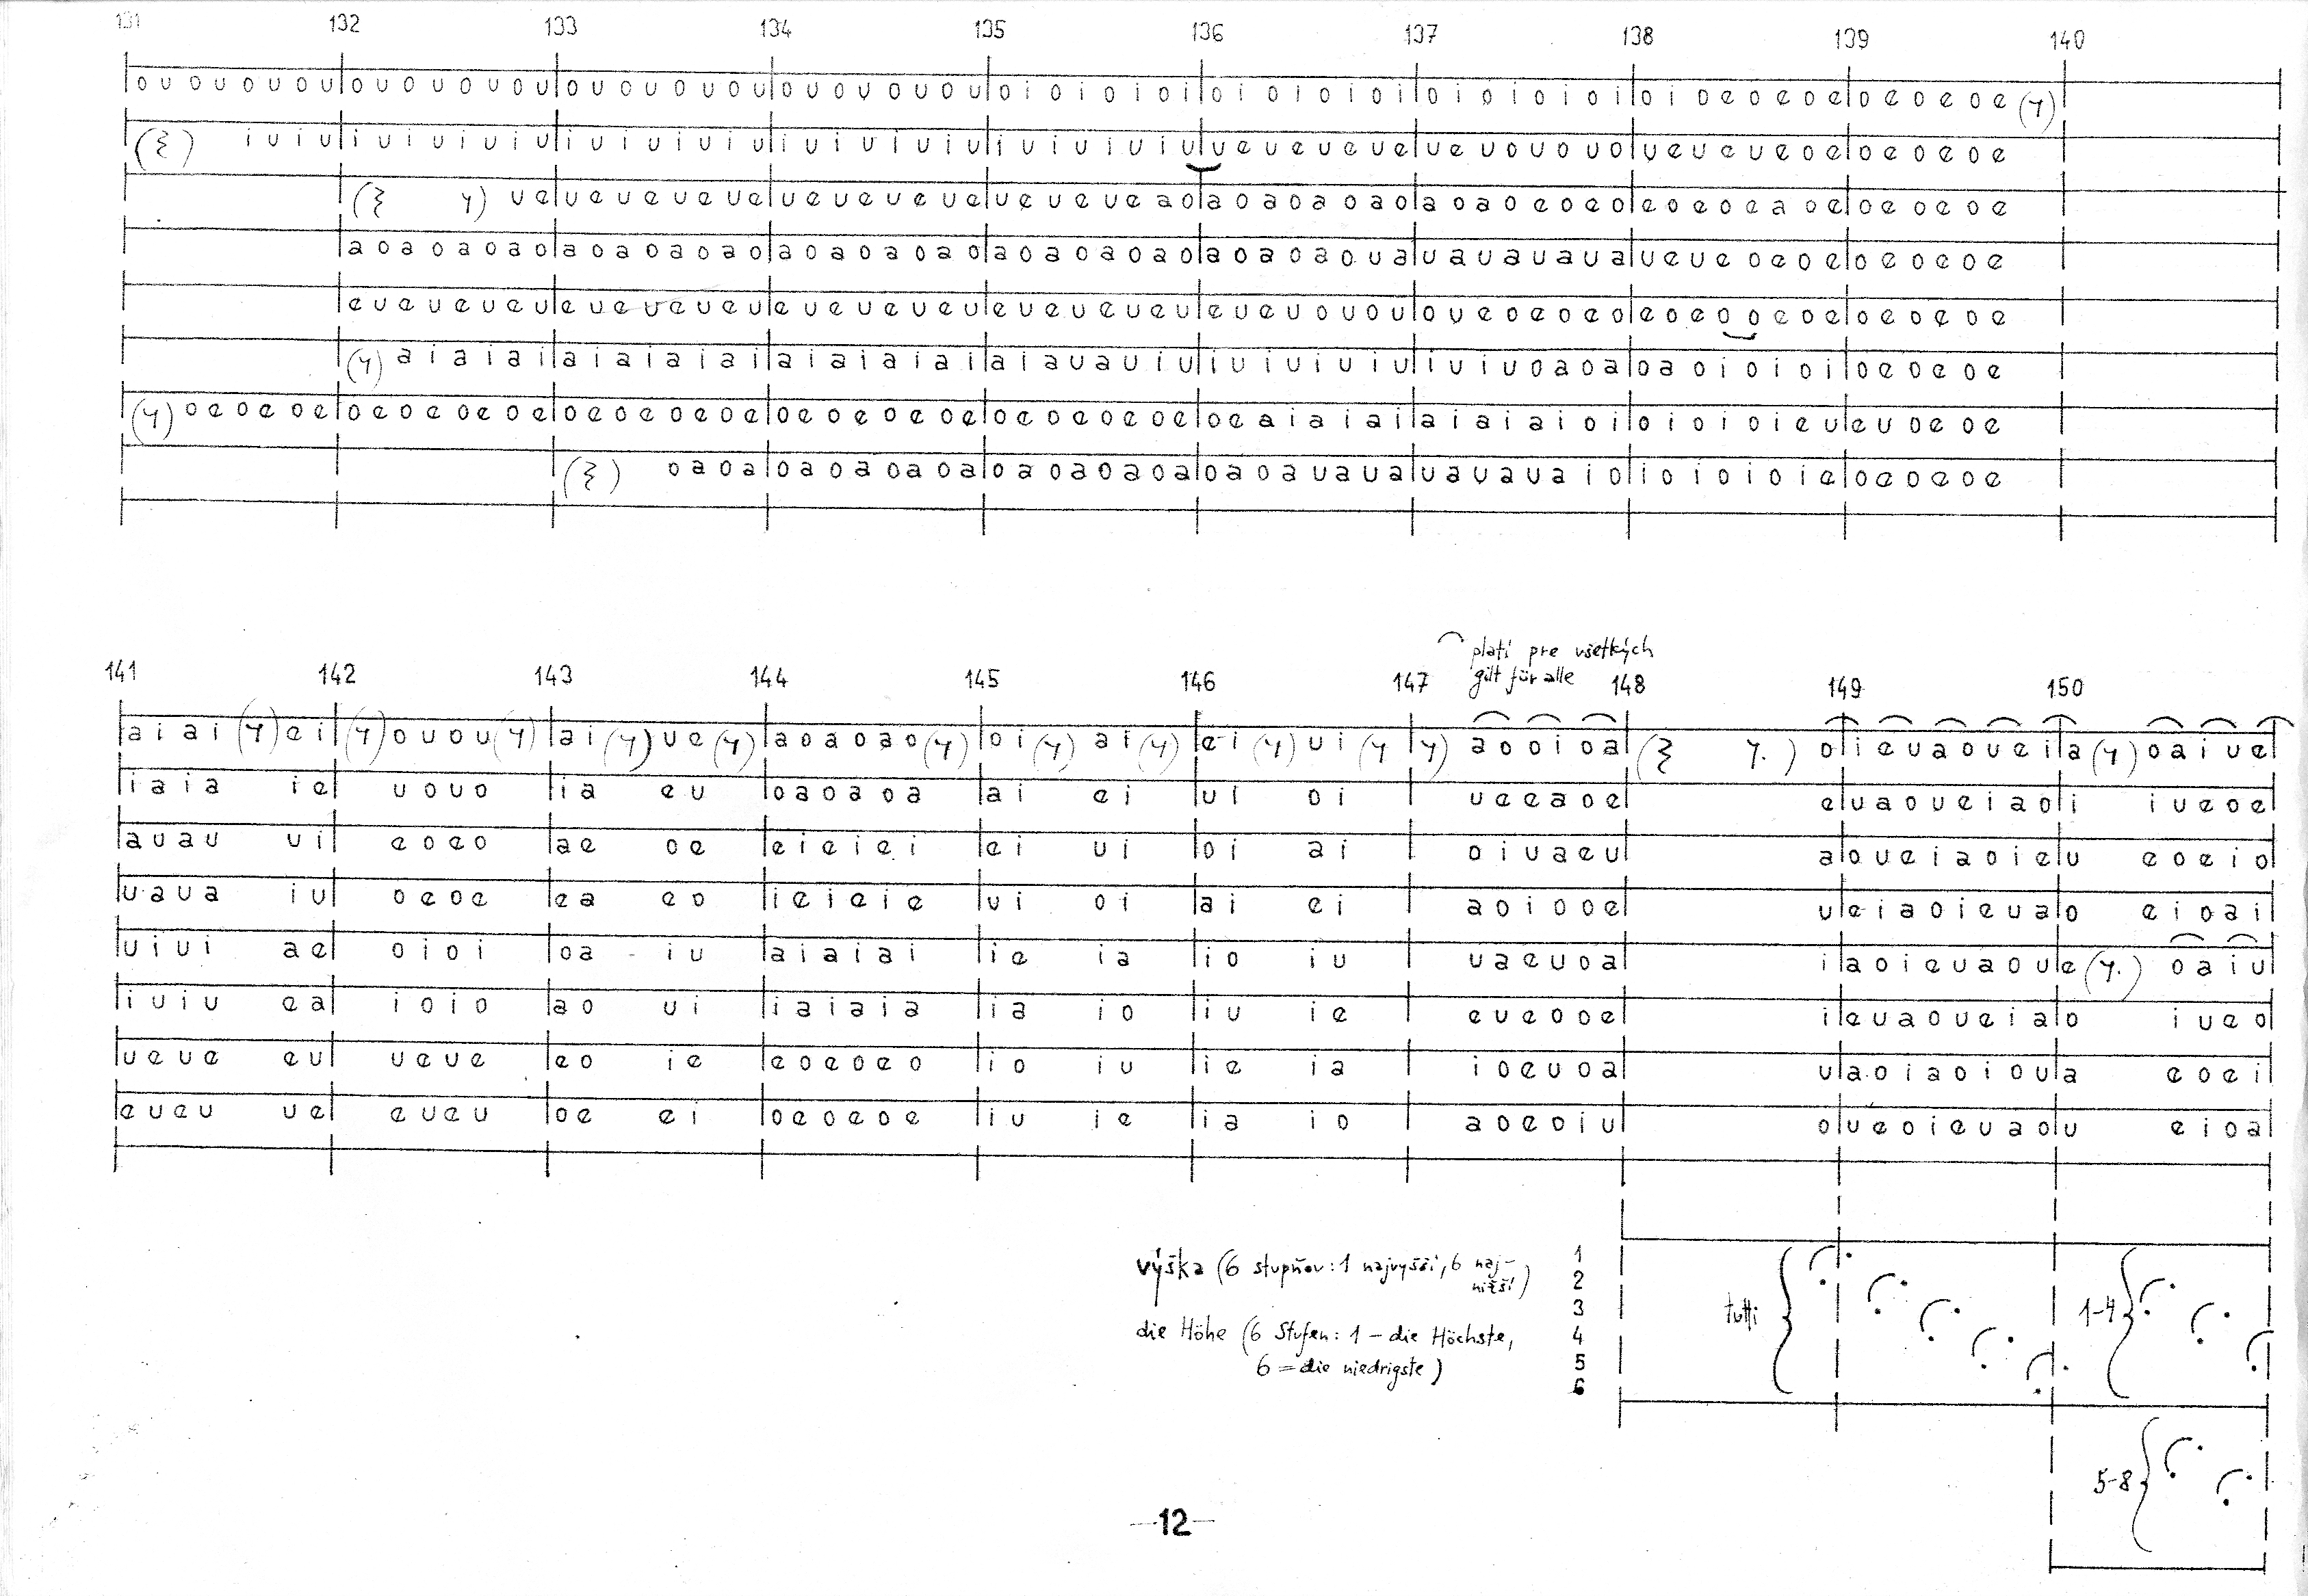 131 132 133 134 135 136 137 138 139 140
o u o u o u o u|o u o u o u o u|o u o u o u o u|o u o u o u o u|o i o i o i o i|o i o i o i o i|o i o i o i o i|o i o e o e o e|o e o e o e
i u i u|i u i u i u i u|i u i u i u i u|i u i u i u i u|i u i u i u i u|u e u e u e u e|u e u o u o u o|u e u e u e o e|o e o e o e
u e|u e u e u e u e|u e u e u e u e|u e u e u e a o|a o a o a o a o|a o a o e o e o|e o e o e a o e|o e o e o e
a o a o a o a o|a o a o a o a o|a o a o a o a o|a o a o a o a o|a o a o a o u a|u a u a u a u a|u e u e o e o e|o e o e o e
e u e u e u e u|e u e u e u e u|e u e u e u e u|e u e u e u e u|e u e u o u o u|o u e o e o e o|e o e o o e o e|o e o e o e
a i a i a i|a i a i a i a i|a i a i a i a i|a i a u a u i u|i u i u i u i u|i u i u o a o a|o a o i o i o i|o e o e o e
o e o e o e|o e o e o e o e|o e o e o e o e|o e o e o e o e|o e o e o e o e|o e a i a i a i|a i a i a i o i|o i o i o i e u|e u o e o e
o a o a|o a o a o a o a|o a o a o a o a|o a o a u a u a|u a u a u a i o|i o i o i o i e|o e o e o e
platí pre všetkých
gilt für alle
141 142 143 144 145 146 147 148 149 150
a i a i e i|o u o u|a i u e|a o a o a o|o i a i|e i u i|a o o i o a|o|i e u a o u e i|a o a i u e|
i a i a i e|u o u o|i a e u|o a o a o a|a i e i|u i o i|u e e a o e|e|u a o u e i a o|i i u e o e|
a u a u u i|e o e o|a e o e|e i e i e i|e i u i|o i a i|o i u a e u|a|o u e i a o i e|u e o e i o|
u a u a i u|o e o e|e a e o|i e i e i e|u i o i|a i e i|a o i o o e|u|e i a o i e u a|o e i o a i|
u i u i a e|o i o i|o a i u|a i a i a i|i e i a|i o i u|u a e u o a|i|a o i e u a o u|e o a i u|
i u i u e a|i o i o|a o u i|i a i a i a|i a i o|i u i e|e u e o o e|i|e u a o u e i a|o i u e o|
u e u e e u|u e u e|e o i e|e o e o e o|i o i u|i e i a|i o e u o a|u|a o i a o i o u|a e o e i|
e u e u u e|e u e u|o e e i|o e o e o e|i u i e|i a i o|a o e o i u|o|u e o i e u a o|u e i o a|
výška (6 stupňov: 1 najvyšší, 6 naj-
nižší)
die Höhe (6 Stufen: 1 – die Höchste,
6 = die niedrigste)
1
2
3
4
5
6
tutti
1-4
5-8
—12—